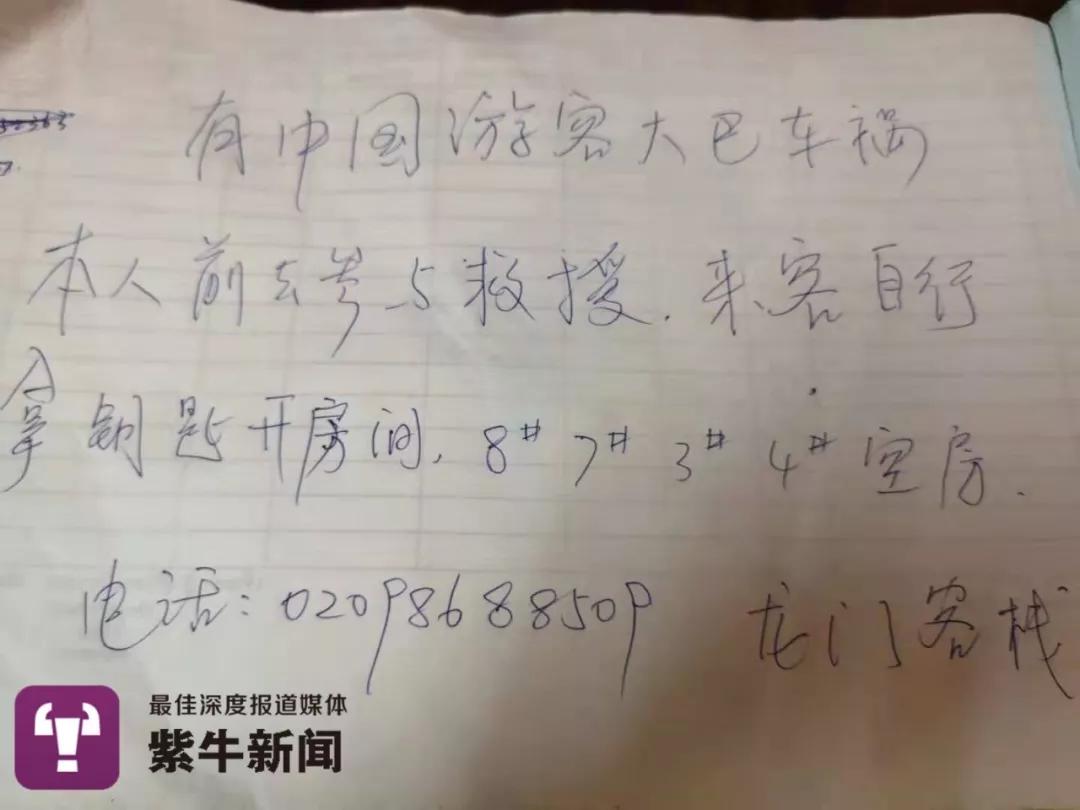 有中国游客大巴车祸
本人前去参与救援.来客自行
拿钥匙开房间,8# 7# 3# 4# 空房.
电话:02098688509 龙门客栈
最佳深度报道媒体
紫牛新闻